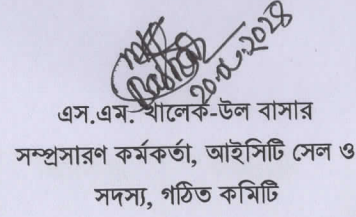 এস.এম. খালেক-উল বাসার
সম্প্রসারণ কর্মকর্তা, আইসিটি সেল ও
সদস্য, গঠিত কমিটি